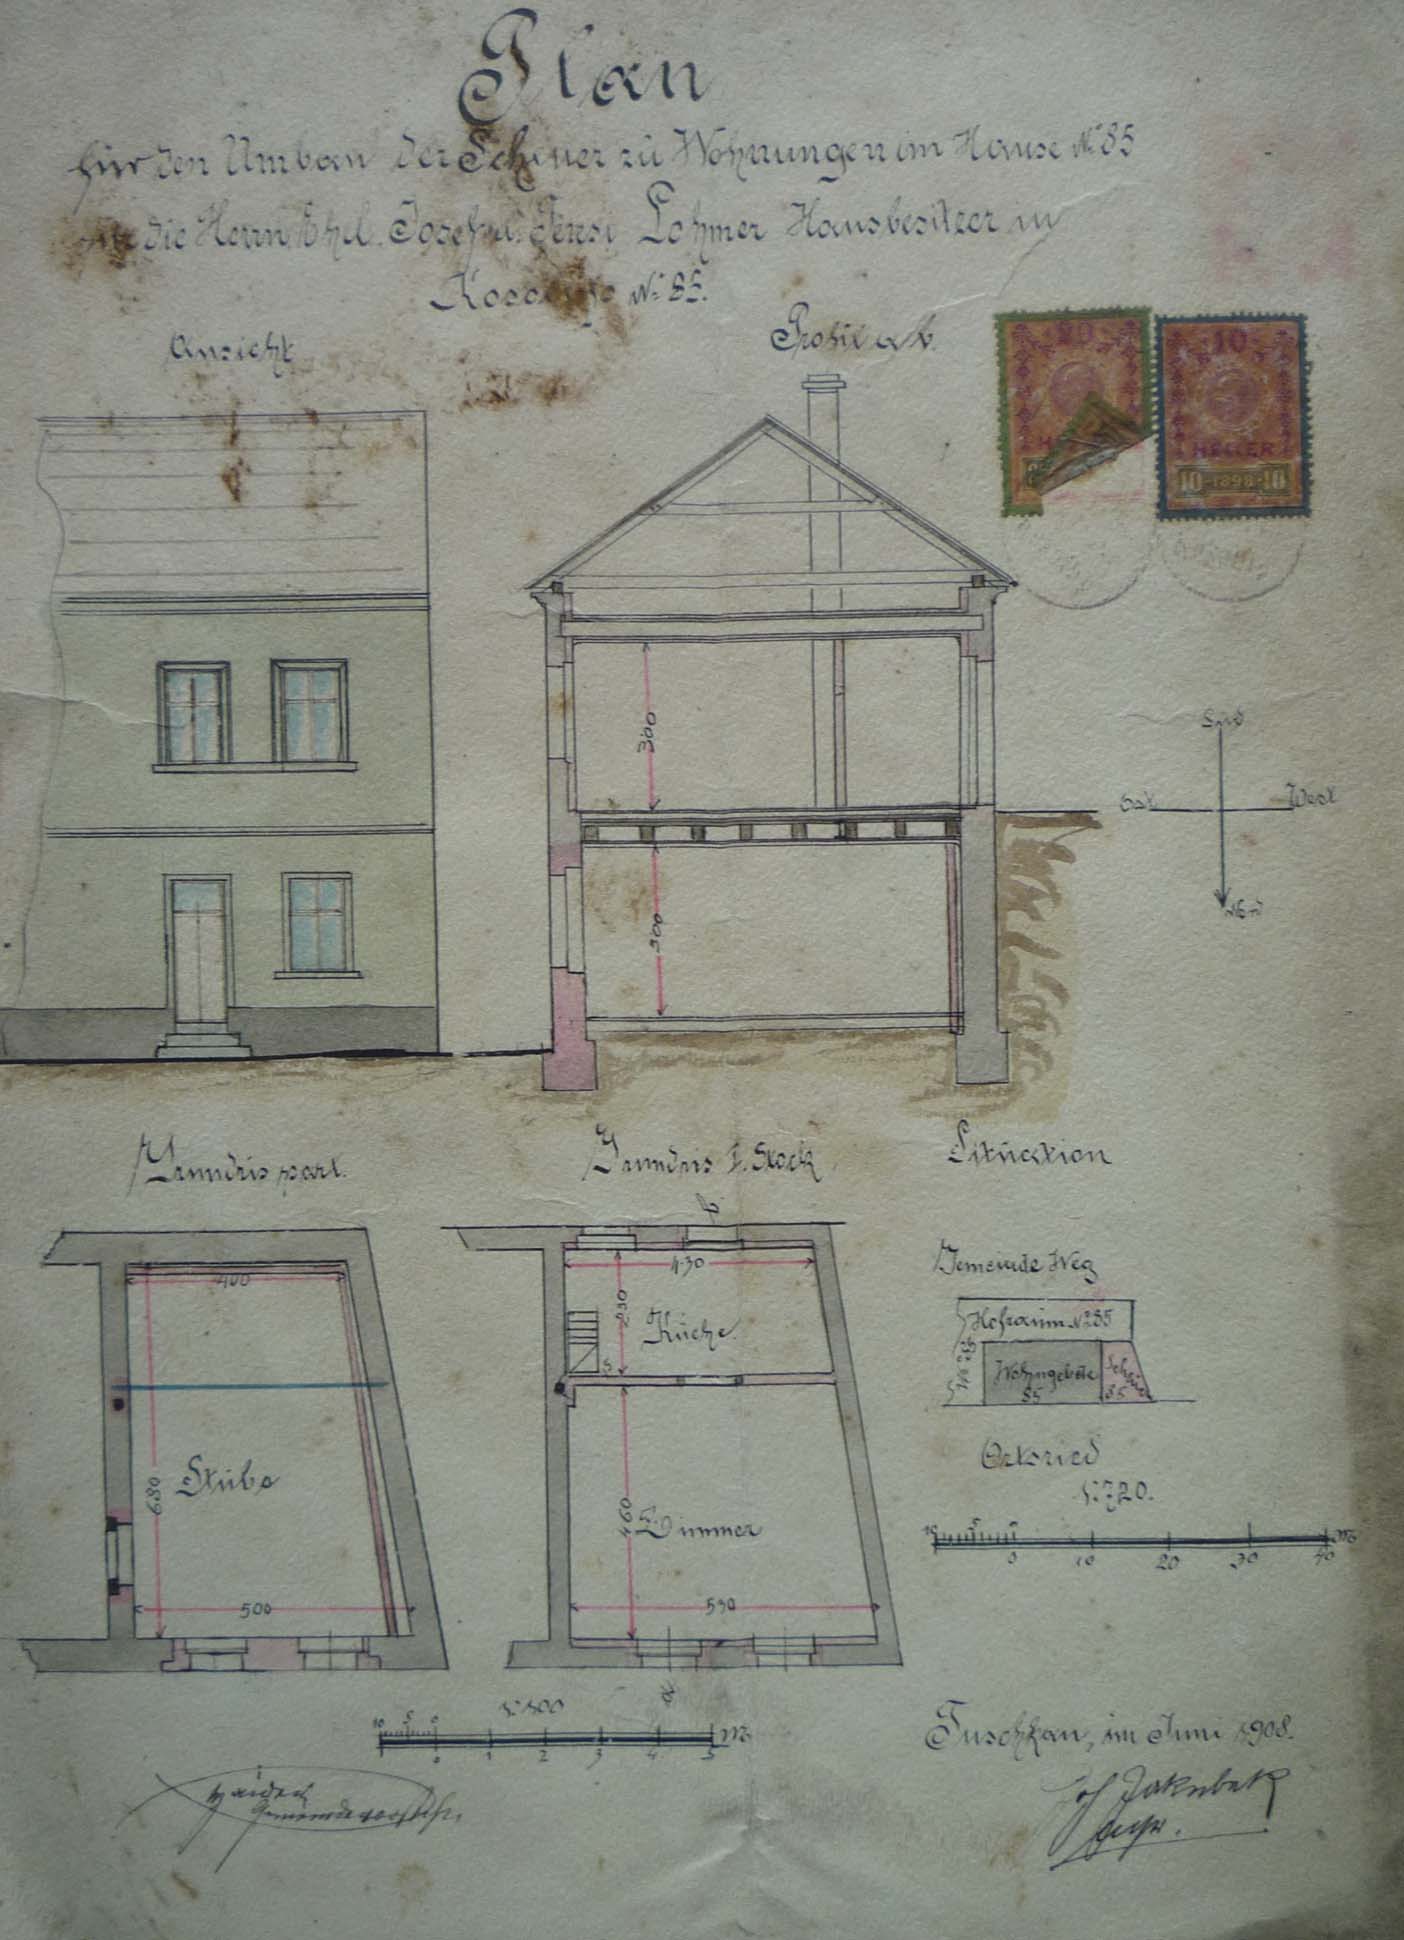 Plan
für den Umbau der Scheuer zu Wohnungen im Hause No 85
die Herrn Ehel. Josef u. Lohmer Hausbesitzer in
No 85.
Ansicht
Profil a b.
20
HELLER
10
HELLER
10 1898 10
300
300
Süd
Ost
West
Nord
Grundris part.
Grundris I. Stock
Situation
b
400
680
Stube
500
430
230
Küche
S
460
Zimmer
590
a
Gemeinde Weg
Hofraum No 85
Wohngebäude
85
Scheuer
85
Ortsried
1:720.
10 5 0
0 10 20 30 40 M
1:100
10 5 0
0 1 2 3 4 5 M
Tuschkau, im Juni 1908.
Gemeindevorsteh.
Jos Jakubek
gepr.